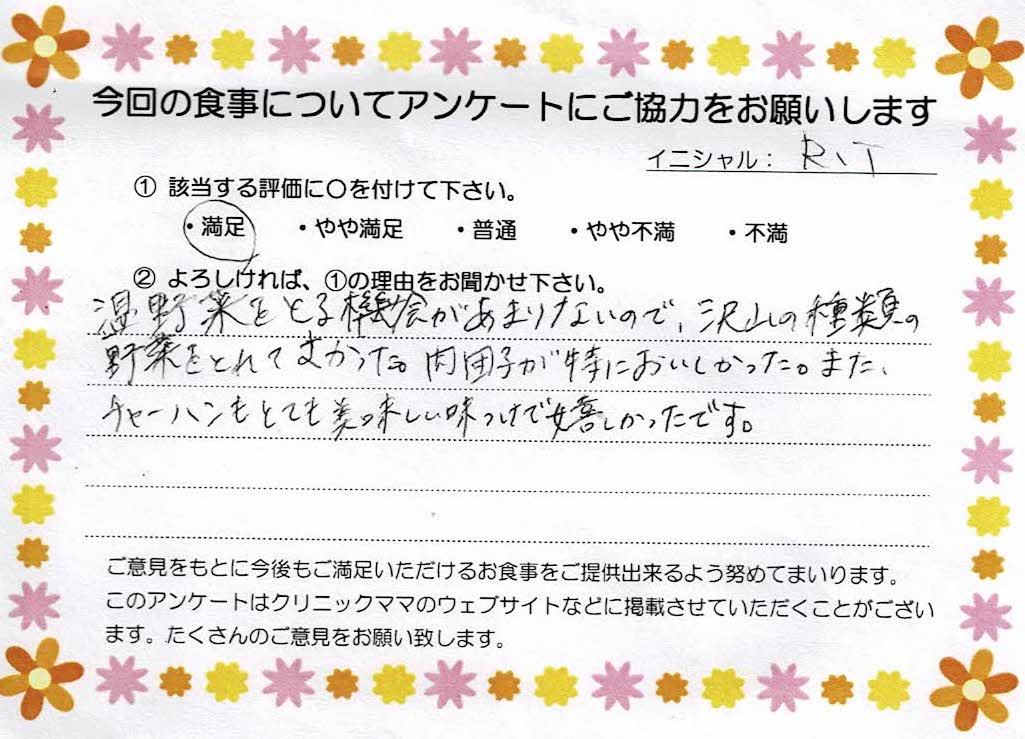 今回の食事についてアンケートにご協力をお願いします
イニシャル： R、T
① 該当する評価に〇を付けて下さい。
・満足 ・やや満足 ・普通 ・やや不満 ・不満
② よろしければ、①の理由をお聞かせ下さい。
温野菜をとる機会があまりないので、沢山の種類の
野菜をとれてよかった。肉団子が特においしかった。また、
チャーハンもとても美味しい味つけで嬉しかったです。
ご意見をもとに今後もご満足いただけるお食事をご提供出来るよう努めてまいります。
このアンケートはクリニックママのウェブサイトなどに掲載させていただくことがござい
ます。たくさんのご意見をお願い致します。